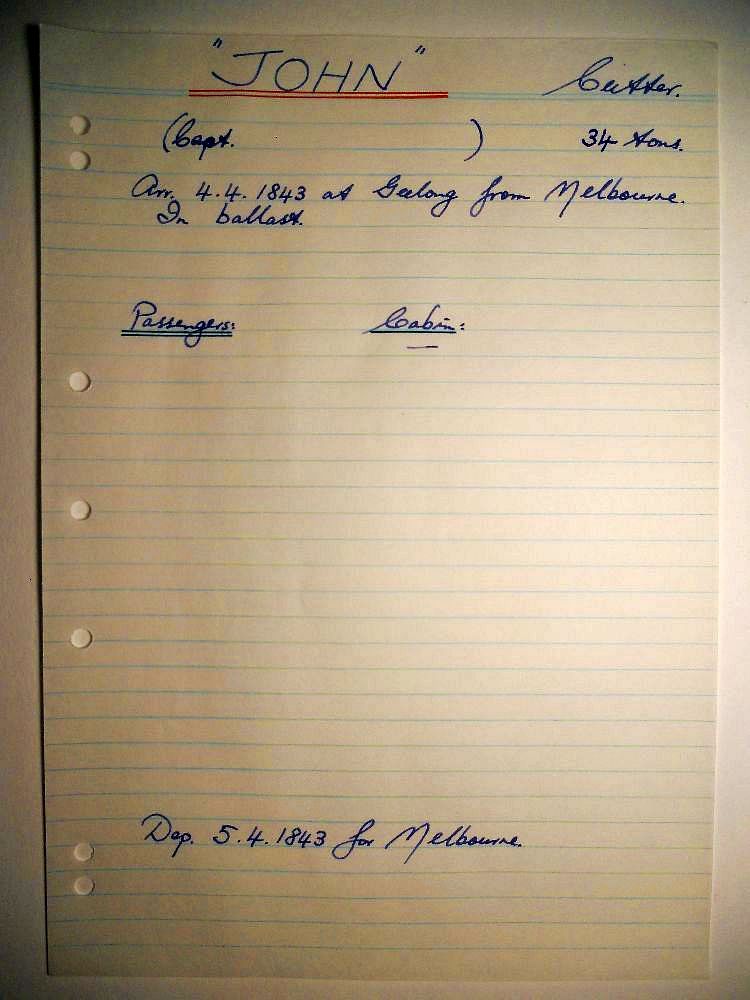 "JOHN" Cutter.
(Capt. ) 34 tons.
Arr. 4.4.1843 at Geelong from Melbourne.
In ballast.
Passengers: Cabin:
—
Dep. 5.4.1843 for Melbourne.